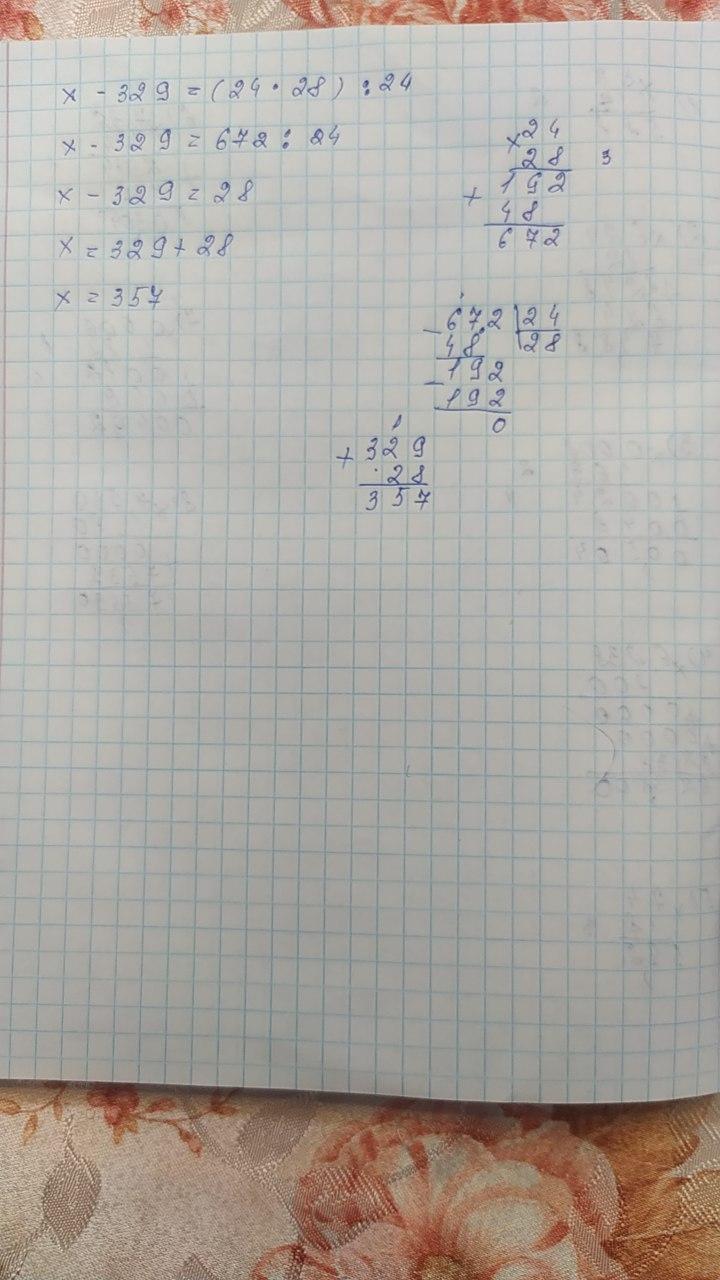 x - 329 = (24 · 28) : 24
x - 329 = 672 : 24
x - 329 = 28
x = 329 + 28
x = 357
× 24
28 3
+ 192
48
672
- 672 | 24
48 | 28
- 192
192
0
1
+ 329
28
357